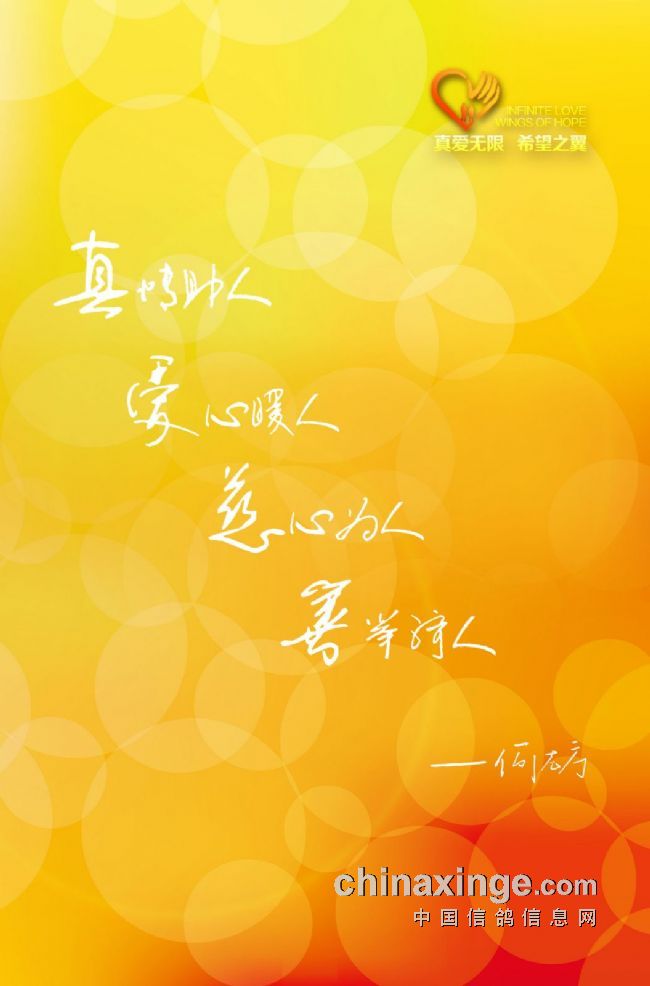 INFINITE LOVE
WINGS OF HOPE
真爱无限 希望之翼
真情助人
爱心暖人
慈心为人
善举济人
——何志序
chinaxinge.com
中国信鸽信息网